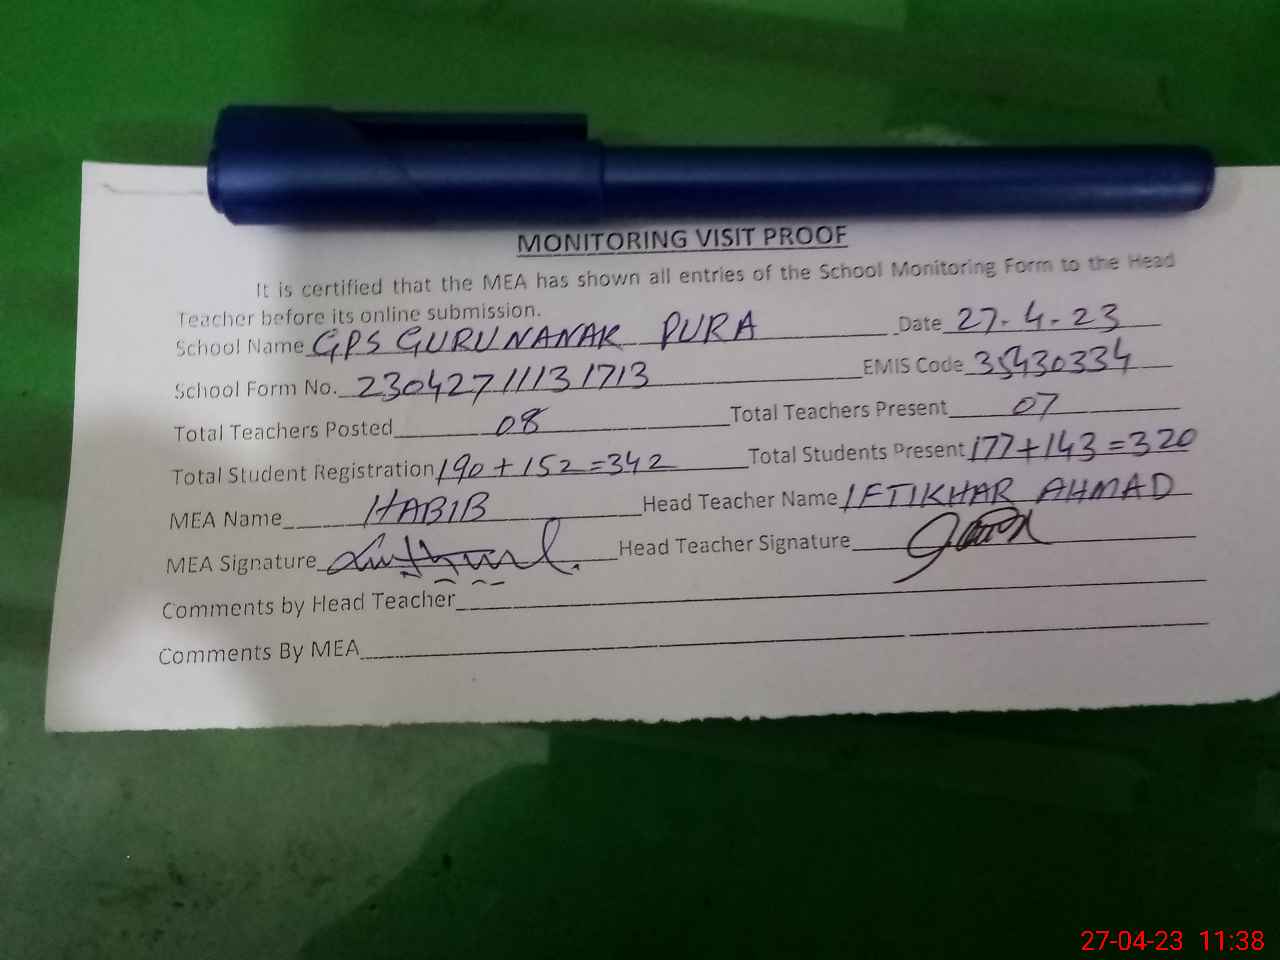 MONITORING VISIT PROOF
It is certified that the MEA has shown all entries of the School Monitoring Form to the Head
Teacher before its online submission.
School Name GPS GURU NANAK PURA Date 27-4-23
School Form No. 23042711131713 EMIS Code 35430334
Total Teachers Posted 08 Total Teachers Present 07
Total Student Registration 190+152=342 Total Students Present 177+143=320
MEA Name HABIB Head Teacher Name IFTIKHAR AHMAD
MEA Signature Head Teacher Signature
Comments by Head Teacher
Comments By MEA
27-04-23 11:38